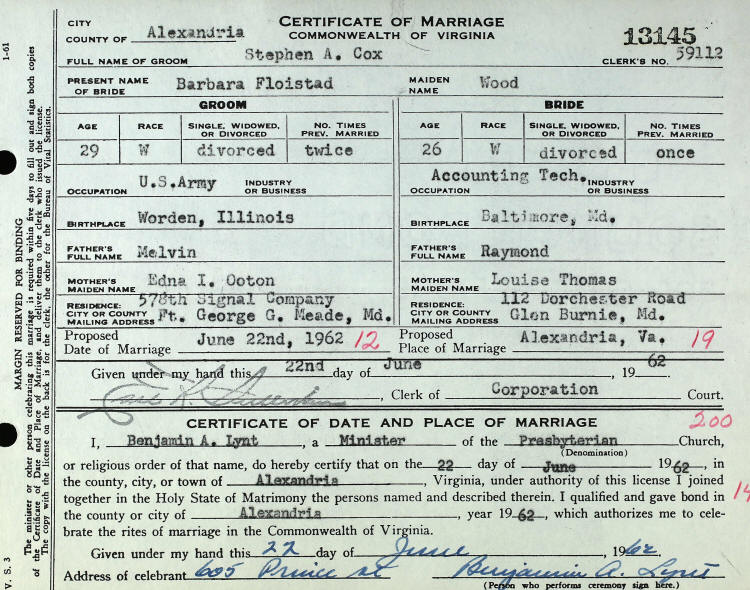 CITY
COUNTY OF Alexandria
CERTIFICATE OF MARRIAGE
COMMONWEALTH OF VIRGINIA
13145
FULL NAME OF GROOM Stephen A. Cox CLERK'S NO. 59112
PRESENT NAME OF BRIDE Barbara Floistad MAIDEN NAME Wood
GROOM BRIDE
AGE RACE SINGLE, WIDOWED, OR DIVORCED NO. TIMES PREV. MARRIED AGE RACE SINGLE, WIDOWED, OR DIVORCED NO. TIMES PREV. MARRIED
29 W divorced twice 26 W divorced once
OCCUPATION U.S.Army INDUSTRY OR BUSINESS OCCUPATION Accounting Tech. INDUSTRY OR BUSINESS
BIRTHPLACE Worden, Illinois BIRTHPLACE Baltimore, Md.
FATHER'S FULL NAME Melvin FATHER'S FULL NAME Raymond
MOTHER'S MAIDEN NAME Edna I. Ooton MOTHER'S MAIDEN NAME Louise Thomas
RESIDENCE: CITY OR COUNTY MAILING ADDRESS 578th Signal Company Ft. George G. Meade, Md. RESIDENCE: CITY OR COUNTY MAILING ADDRESS 112 Dorchester Road Glen Burnie, Md.
Proposed Date of Marriage June 22nd, 1962 12 Proposed Place of Marriage Alexandria, Va. 19
Given under my hand this 22nd day of June, 1962
, Clerk of Corporation Court.
CERTIFICATE OF DATE AND PLACE OF MARRIAGE 200
I, Benjamin A. Lynt, a Minister of the Presbyterian Church,
(Denomination)
or religious order of that name, do hereby certify that on the 22 day of June 1962, in
the county, city, or town of Alexandria, Virginia, under authority of this license I joined
together in the Holy State of Matrimony the persons named and described therein. I qualified and gave bond in 14
the county or city of Alexandria, year 1962, which authorizes me to cele-
brate the rites of marriage in the Commonwealth of Virginia.
Given under my hand this 22 day of June, 1962
Address of celebrant 605 Prince st Benjamin A. Lynt
(Person who performs ceremony sign here.)
1-61
V. S. 3
MARGIN RESERVED FOR BINDING
The minister or other person celebrating this marriage is required within five days to fill out and sign both copies
of the Certificate of Date and Place of Marriage, and deliver them to the clerk who issued the license.
The copy with the license on the back is for the clerk, the other for the Bureau of Vital Statistics.